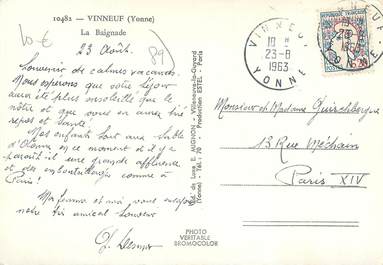 10482 - VINNEUF (Yonne)
La Baignade
10 €
89
23 Août.
Souvenir de calmes vacances.
Nous espérons que votre séjour
aura été plus ensoleillé que le
nôtre et que vous en aurez tiré
repos et santé.
Mes enfants sont aux
en ce moment et il y a
paraît-il une grande affluence
et des embouteillages comme à
Paris !
Ma femme et moi vous
notre amical
Ed. du Lion, E. MIGNON - Villeneuve-la-Guyard
(Yonne) - Tél. : 70 - Production ESTEL - Paris
PHOTO
VERITABLE
BROMOCOLOR
VINNEUF
23-8
1963
YONNE
Monsieur et Madame
13 Rue Méchain
Paris XIV